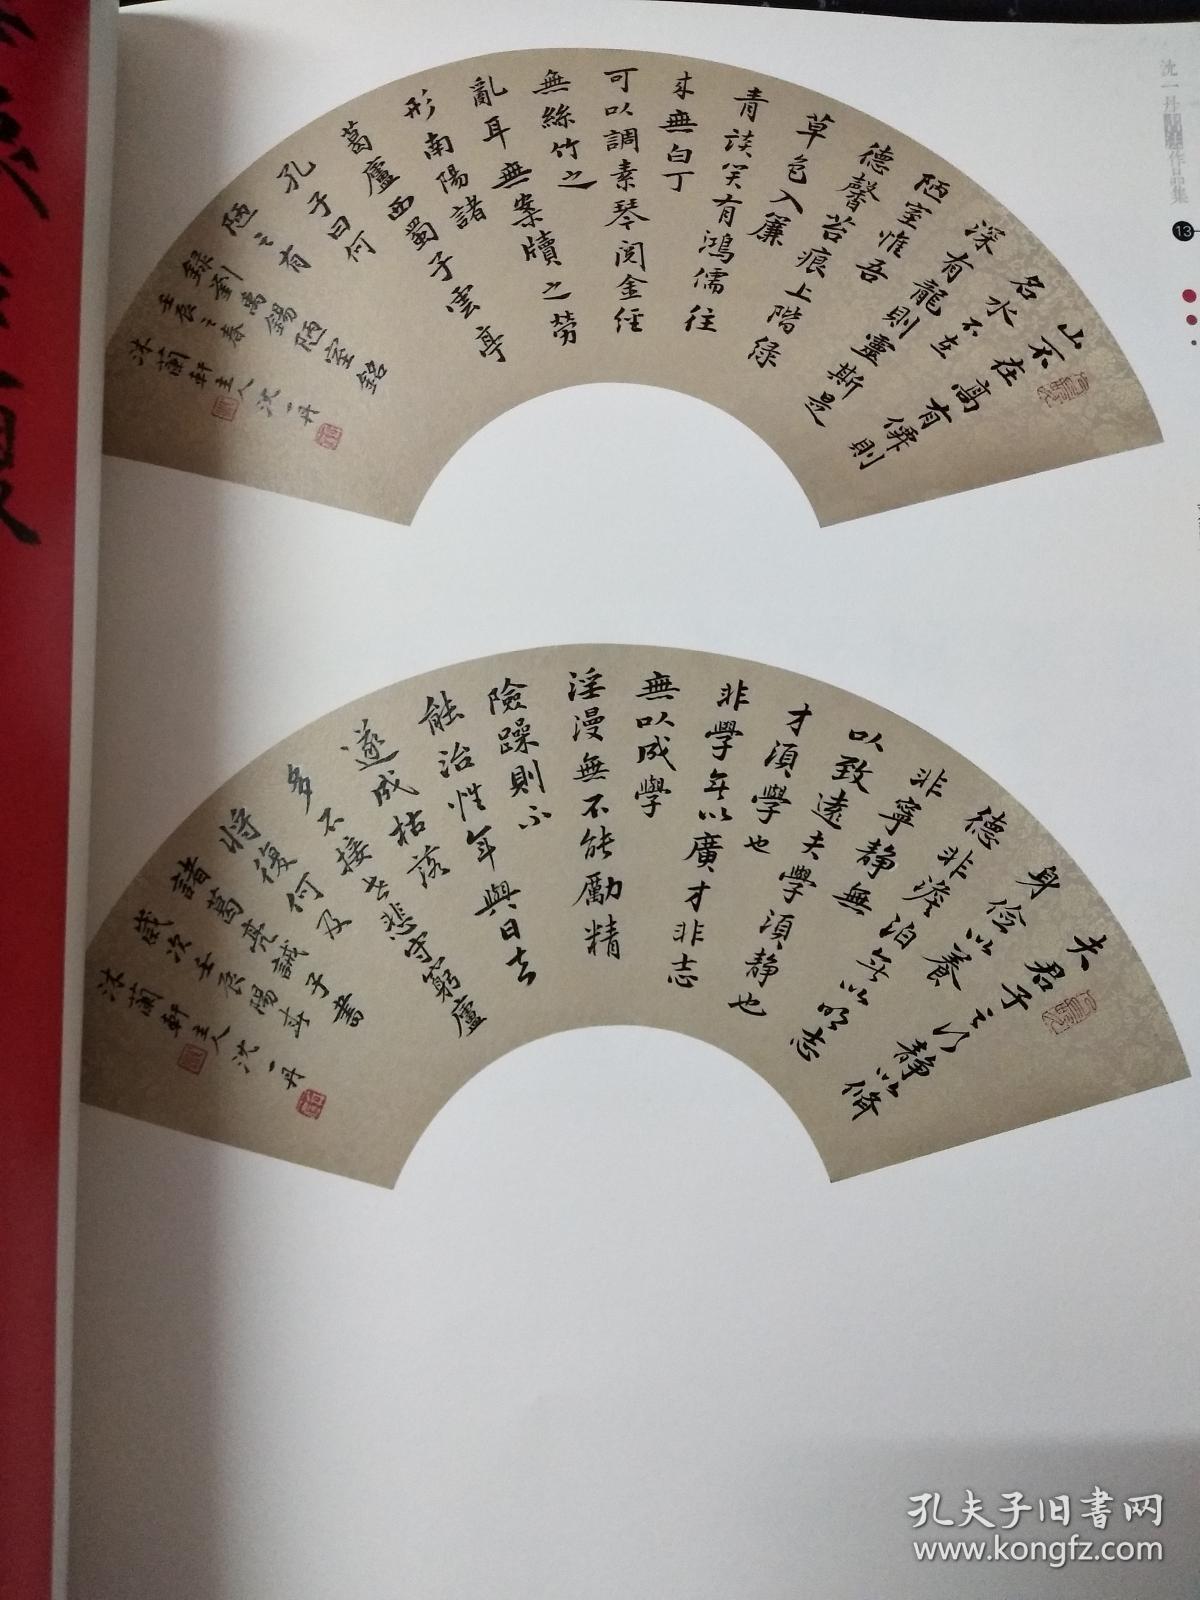 沈一丹
作品集
13
山不在高有僊則
名水不在
深有龍則靈斯是
陋室惟吾
德馨苔痕上階緑
草色入簾
青談笑有鴻儒往
来無白丁
可以調素琴閲金经
無絲竹之
亂耳無案牘之勞
形南陽諸
葛廬西蜀子雲亭
孔子曰何
陋之有
録劉禹錫陋室銘
壬辰之春
沐蘭軒主人沈一丹
夫君子之行静以脩
身儉以養
德非澹泊無以明志
非寧静無
以致遠夫學須静也
才須學也
非學無以廣才非志
無以成學
淫漫無不能勵精
險躁則不
能治性年與日去
遂成枯落
多不接世悲守窮廬
將復何及
諸葛亮誡子書
歲次壬辰陽春
沐蘭軒主人沈一丹
孔夫子旧书网
www.kongfz.com